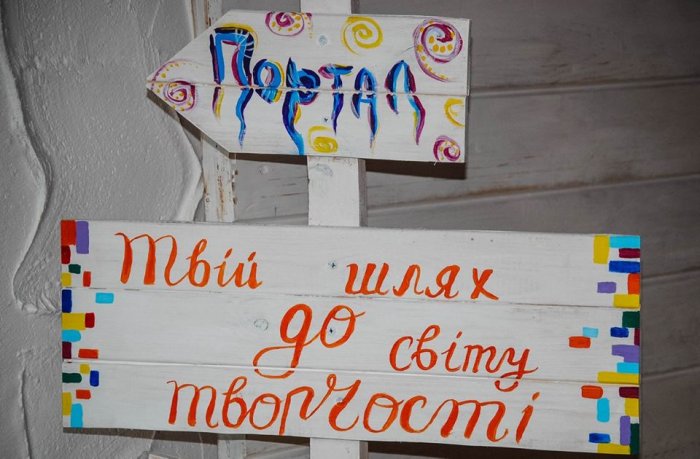 Портал
Твій шлях
до світу
творчості